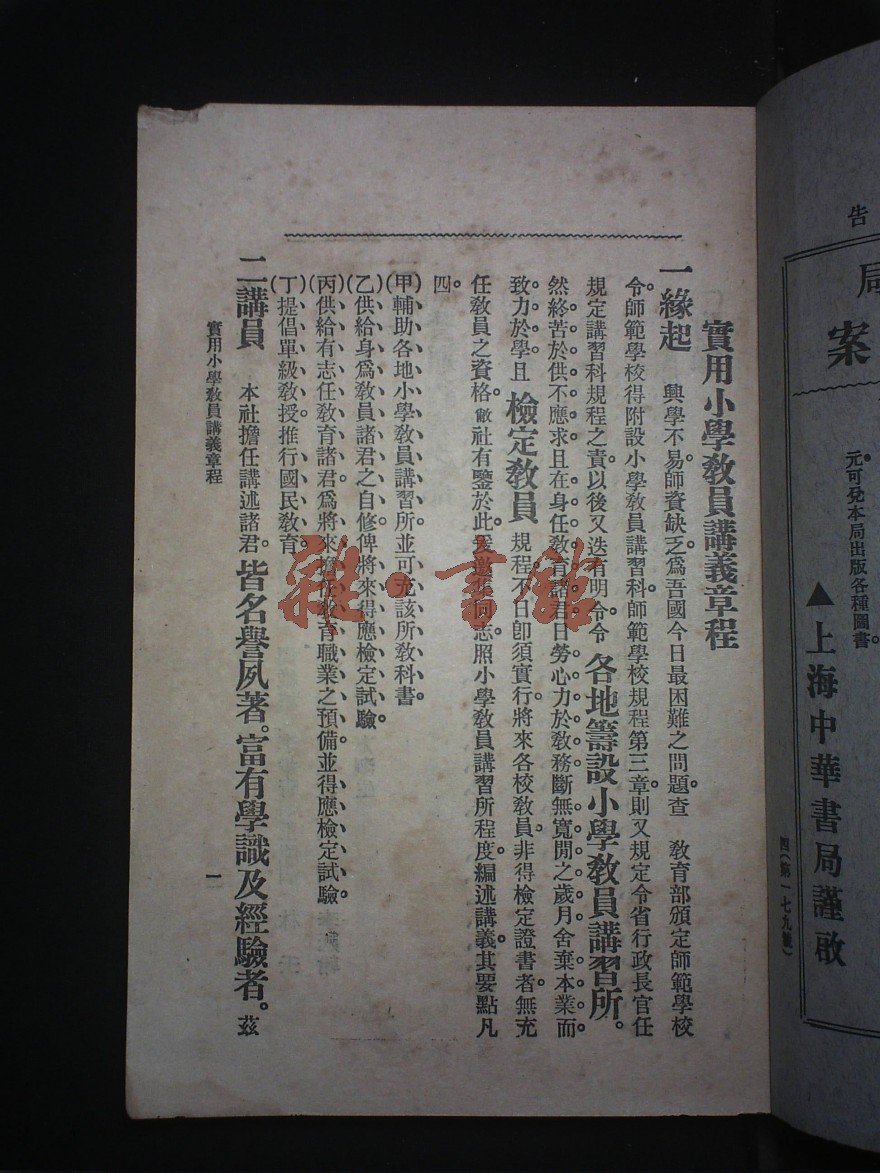 實用小學教員講義章程
一緣起 興學不易。師資缺乏。爲吾國今日最困難之問題。查 教育部頒定師範學校
令。師範學校得附設小學教員講習科。師範學校規程第三章。則又規定令省行政長官任
規定講習科規程之責。以後又迭有明令。令 各地籌設小學教員講習所。
然終苦於供不應求。且在身任教育諸君。日勞心力於教務。斷無寬閒之歲月。舍棄本業而
致力於學。且 檢定教員 規程。不日卽須實行。將來各校教員。非得檢定證書者。無充
任教員之資格。敝社有鑒於此。援邀集同志。照小學教員講習所程度。編述講義。其要點凡
四。
(甲)輔助各地小學教員講習所並可充該所教科書。
(乙)供給身爲教員諸君之自修俾將來得應檢定試驗。
(丙)供給有志任教育諸君爲將來擔任教育職業之預備並得應檢定試驗。
(丁)提倡單級教授推行國民教育。
二講員 本社擔任講述諸君。皆名譽夙著。富有學識及經驗者。茲
實用小學教員講義章程
一
告
局
案
元可兌本局出版各種圖書。
▲上海中華書局謹啟
四(第一七九號)
雜·書館